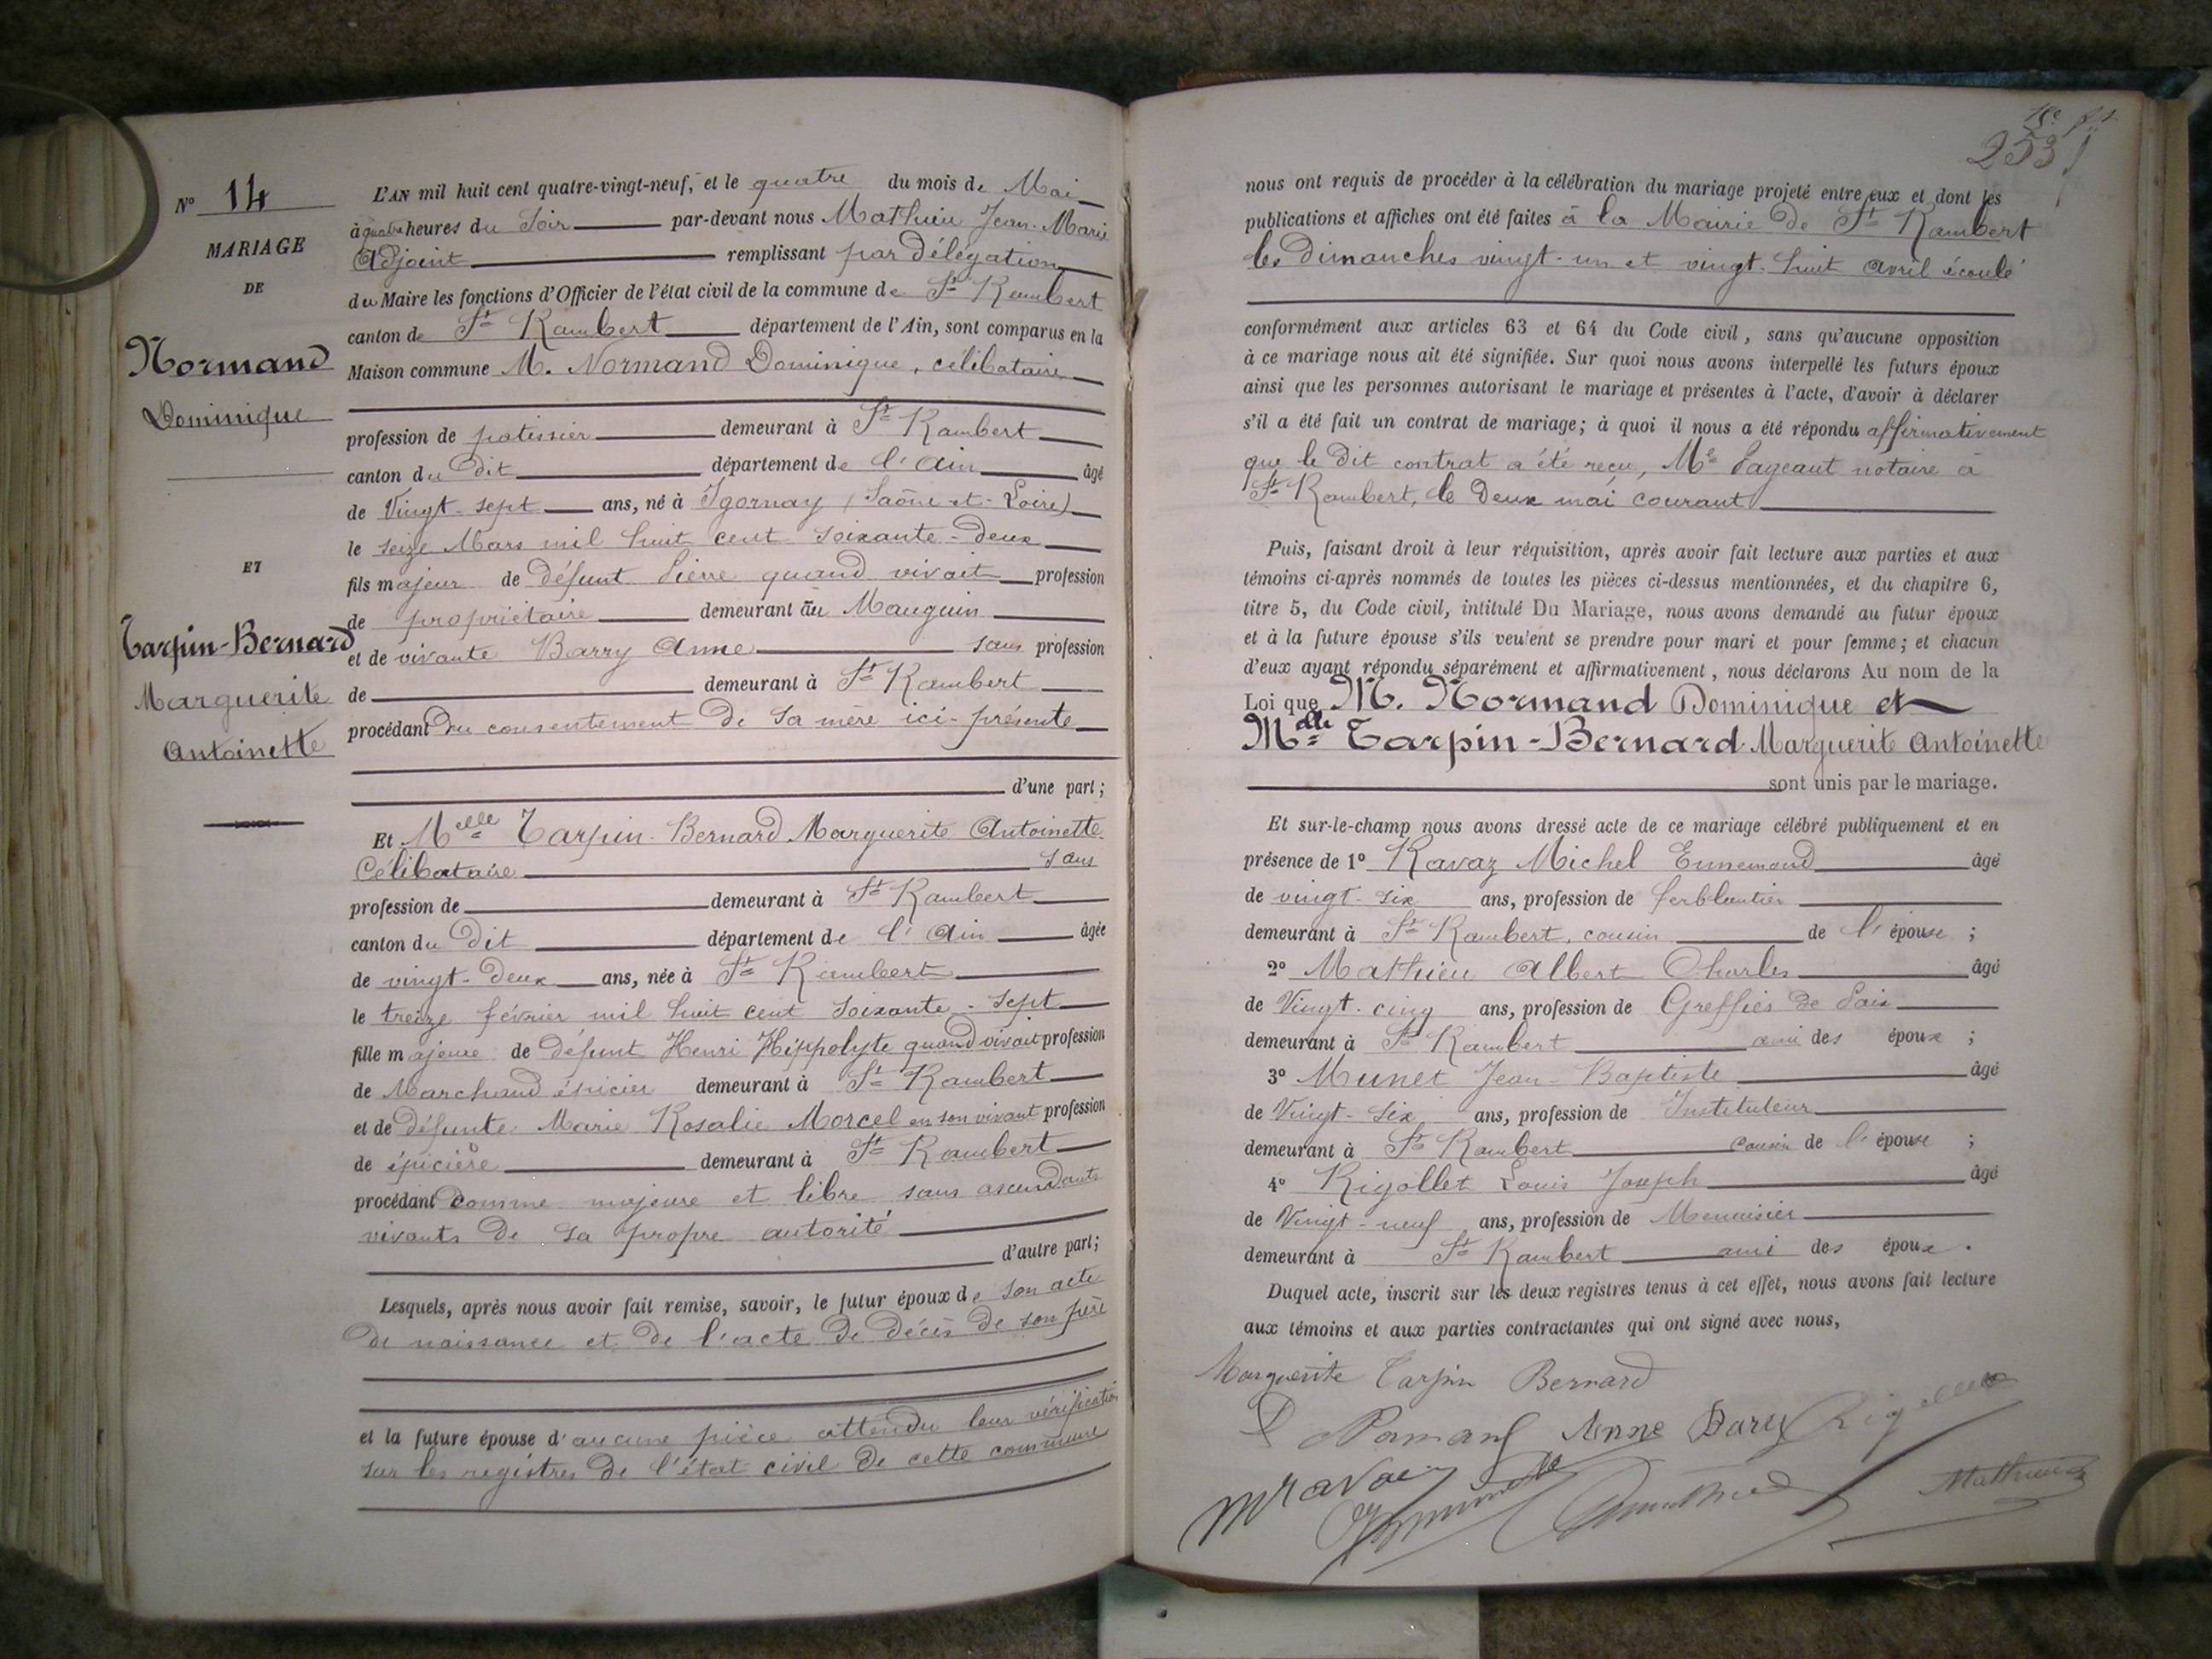 Nº 14
MARIAGE
DE
Normand
Dominique
ET
Tarpin-Bernard
Marguerite
Antoinette
L'AN mil huit cent quatre-vingt-neuf, et le quatre du mois de Mai
à quatre heures du Soir par-devant nous Mathieu Jean-Marie
Adjoint remplissant par délégation
du Maire les fonctions d'Officier de l'état civil de la commune de St Rambert
canton de St Rambert département de l'Ain, sont comparus en la
Maison commune M. Normand Dominique, célibataire
profession de patissier demeurant à St Rambert
canton du dit département de l'Ain âgé
de Vingt-sept ans, né à Igornay (Saône-et-Loire)
le seize Mars mil huit cent soixante-deux
fils majeur de défunt Pierre quand vivait profession
de propriétaire demeurant au Mauguin
et de vivante Barry Anne sans profession
de demeurant à St Rambert
procédant du consentement de sa mère ici-présente
d'une part;
Et Melle Tarpin-Bernard Marguerite Antoinette
Célibataire sans
profession de demeurant à St Rambert
canton du dit département de l'Ain âgée
de vingt-deux ans, née à St Rambert
le treize février mil huit cent soixante-sept
fille majeure de défunt Henri Hippolyte quand vivait profession
de Marchand épicier demeurant à St Rambert
et de défunte Marie Rosalie Morcel en son vivant profession
de épicière demeurant à St Rambert
procédant comme majeure et libre sans ascendants
vivants de sa propre autorité
d'autre part;
Lesquels, après nous avoir fait remise, savoir, le futur époux de son acte
de naissance et de l'acte de décès de son père
et la future épouse d'aucune pièce attendu leur vérification
sur les registres de l'état civil de cette commune
253
nous ont requis de procéder à la célébration du mariage projeté entre eux et dont les
publications et affiches ont été faites à la Mairie de St Rambert
les Dimanches vingt-un et vingt-huit avril écoulé
conformément aux articles 63 et 64 du Code civil, sans qu'aucune opposition
à ce mariage nous ait été signifiée. Sur quoi nous avons interpellé les futurs époux
ainsi que les personnes autorisant le mariage et présentes à l'acte, d'avoir à déclarer
s'il a été fait un contrat de mariage; à quoi il nous a été répondu affirmativement
que le dit contrat a été reçu, Me Pageaut notaire à
St Rambert, le deux mai courant
Puis, faisant droit à leur réquisition, après avoir fait lecture aux parties et aux
témoins ci-après nommés de toutes les pièces ci-dessus mentionnées, et du chapitre 6,
titre 5, du Code civil, intitulé Du Mariage, nous avons demandé au futur époux
et à la future épouse s'ils veulent se prendre pour mari et pour femme; et chacun
d'eux ayant répondu séparément et affirmativement, nous déclarons Au nom de la
Loi que M. Normand Dominique et
Mlle Tarpin-Bernard Marguerite Antoinette
sont unis par le mariage.
Et sur-le-champ nous avons dressé acte de ce mariage célébré publiquement et en
présence de 1º Ravaz Michel Ennemond âgé
de vingt-six ans, profession de ferblantier
demeurant à St Rambert, cousin de l'épouse ;
2º Mathieu Albert Charles âgé
de Vingt-cinq ans, profession de Greffier de Paix
demeurant à St Rambert ami des époux ;
3º Munet Jean-Baptiste âgé
de Vingt-six ans, profession de Instituteur
demeurant à St Rambert cousin de l'épouse ;
4º Rigollet Louis Joseph âgé
de Vingt-neuf ans, profession de Menuisier
demeurant à St Rambert ami des époux .
Duquel acte, inscrit sur les deux registres tenus à cet effet, nous avons fait lecture
aux témoins et aux parties contractantes qui ont signé avec nous,
Marguerite Tarpin Bernard
D Normand Anne Barry
M Ravaz
Mathieu